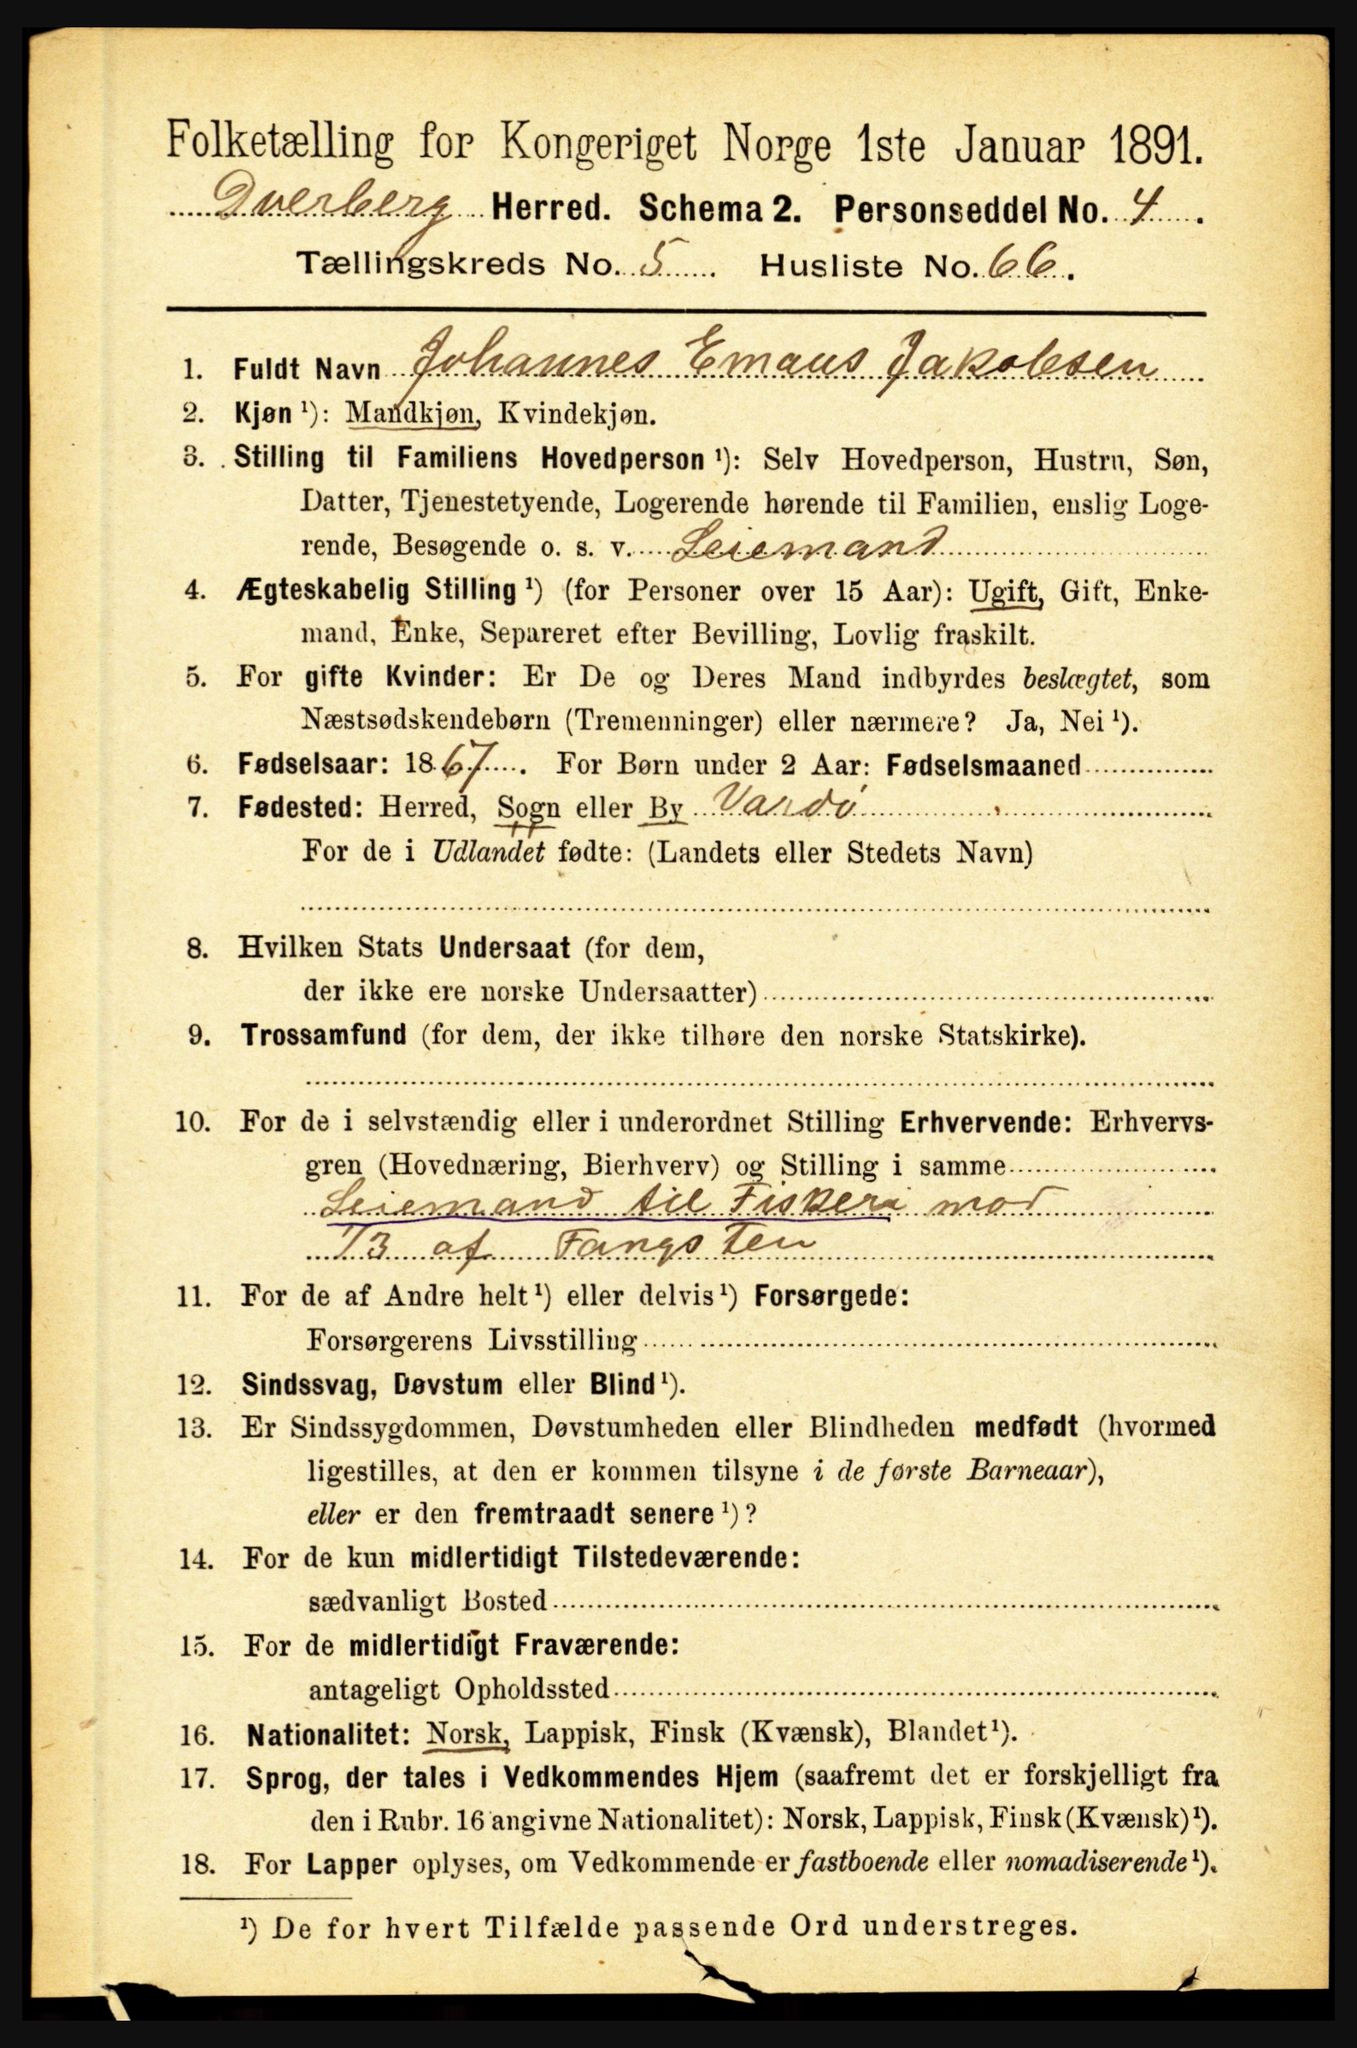 Folketælling for Kongeriget Norge 1ste Januar 1891.
Dverberg Herred. Schema 2. Personseddel No. 4.
Tællingskreds No. 5. Husliste No. 66.
1. Fuldt Navn Johannes Emaus Jakobsen
2. Kjøn ¹): Mandkjøn, Kvindekjøn.
3. Stilling til Familiens Hovedperson ¹): Selv Hovedperson, Hustru, Søn,
Datter, Tjenestetyende, Logerende hørende til Familien, enslig Loge-
rende, Besøgende o. s. v. Leiemand
4. Ægteskabelig Stilling ¹) (for Personer over 15 Aar): Ugift, Gift, Enke-
mand, Enke, Separeret efter Bevilling, Lovlig fraskilt.
5. For gifte Kvinder: Er De og Deres Mand indbyrdes beslægtet, som
Næstsødskendebørn (Tremenninger) eller nærmere? Ja, Nei ¹).
6. Fødselsaar: 1867. For Børn under 2 Aar: Fødselsmaaned
7. Fødested: Herred, Sogn eller By Vardø
For de i Udlandet fødte: (Landets eller Stedets Navn)
8. Hvilken Stats Undersaat (for dem,
der ikke ere norske Undersaatter)
9. Trossamfund (for dem, der ikke tilhøre den norske Statskirke).
10. For de i selvstændig eller i underordnet Stilling Erhvervende: Erhvervs-
gren (Hovednæring, Bierhverv) og Stilling i samme
Leiemand til Fiskeri mod
1/3 af Fangsten
11. For de af Andre helt ¹) eller delvis ¹) Forsørgede:
Forsørgerens Livsstilling
12. Sindssvag, Døvstum eller Blind ¹).
13. Er Sindssygdommen, Døvstumheden eller Blindheden medfødt (hvormed
ligestilles, at den er kommen tilsyne i de første Barneaar),
eller er den fremtraadt senere ¹)?
14. For de kun midlertidigt Tilstedeværende:
sædvanligt Bosted
15. For de midlertidigt Fraværende:
antageligt Opholdssted
16. Nationalitet: Norsk, Lappisk, Finsk (Kvænsk), Blandet ¹).
17. Sprog, der tales i Vedkommendes Hjem (saafremt det er forskjelligt fra
den i Rubr. 16 angivne Nationalitet): Norsk, Lappisk, Finsk (Kvænsk) ¹).
18. For Lapper oplyses, om Vedkommende er fastboende eller nomadiserende ¹).
¹) De for hvert Tilfælde passende Ord understreges.